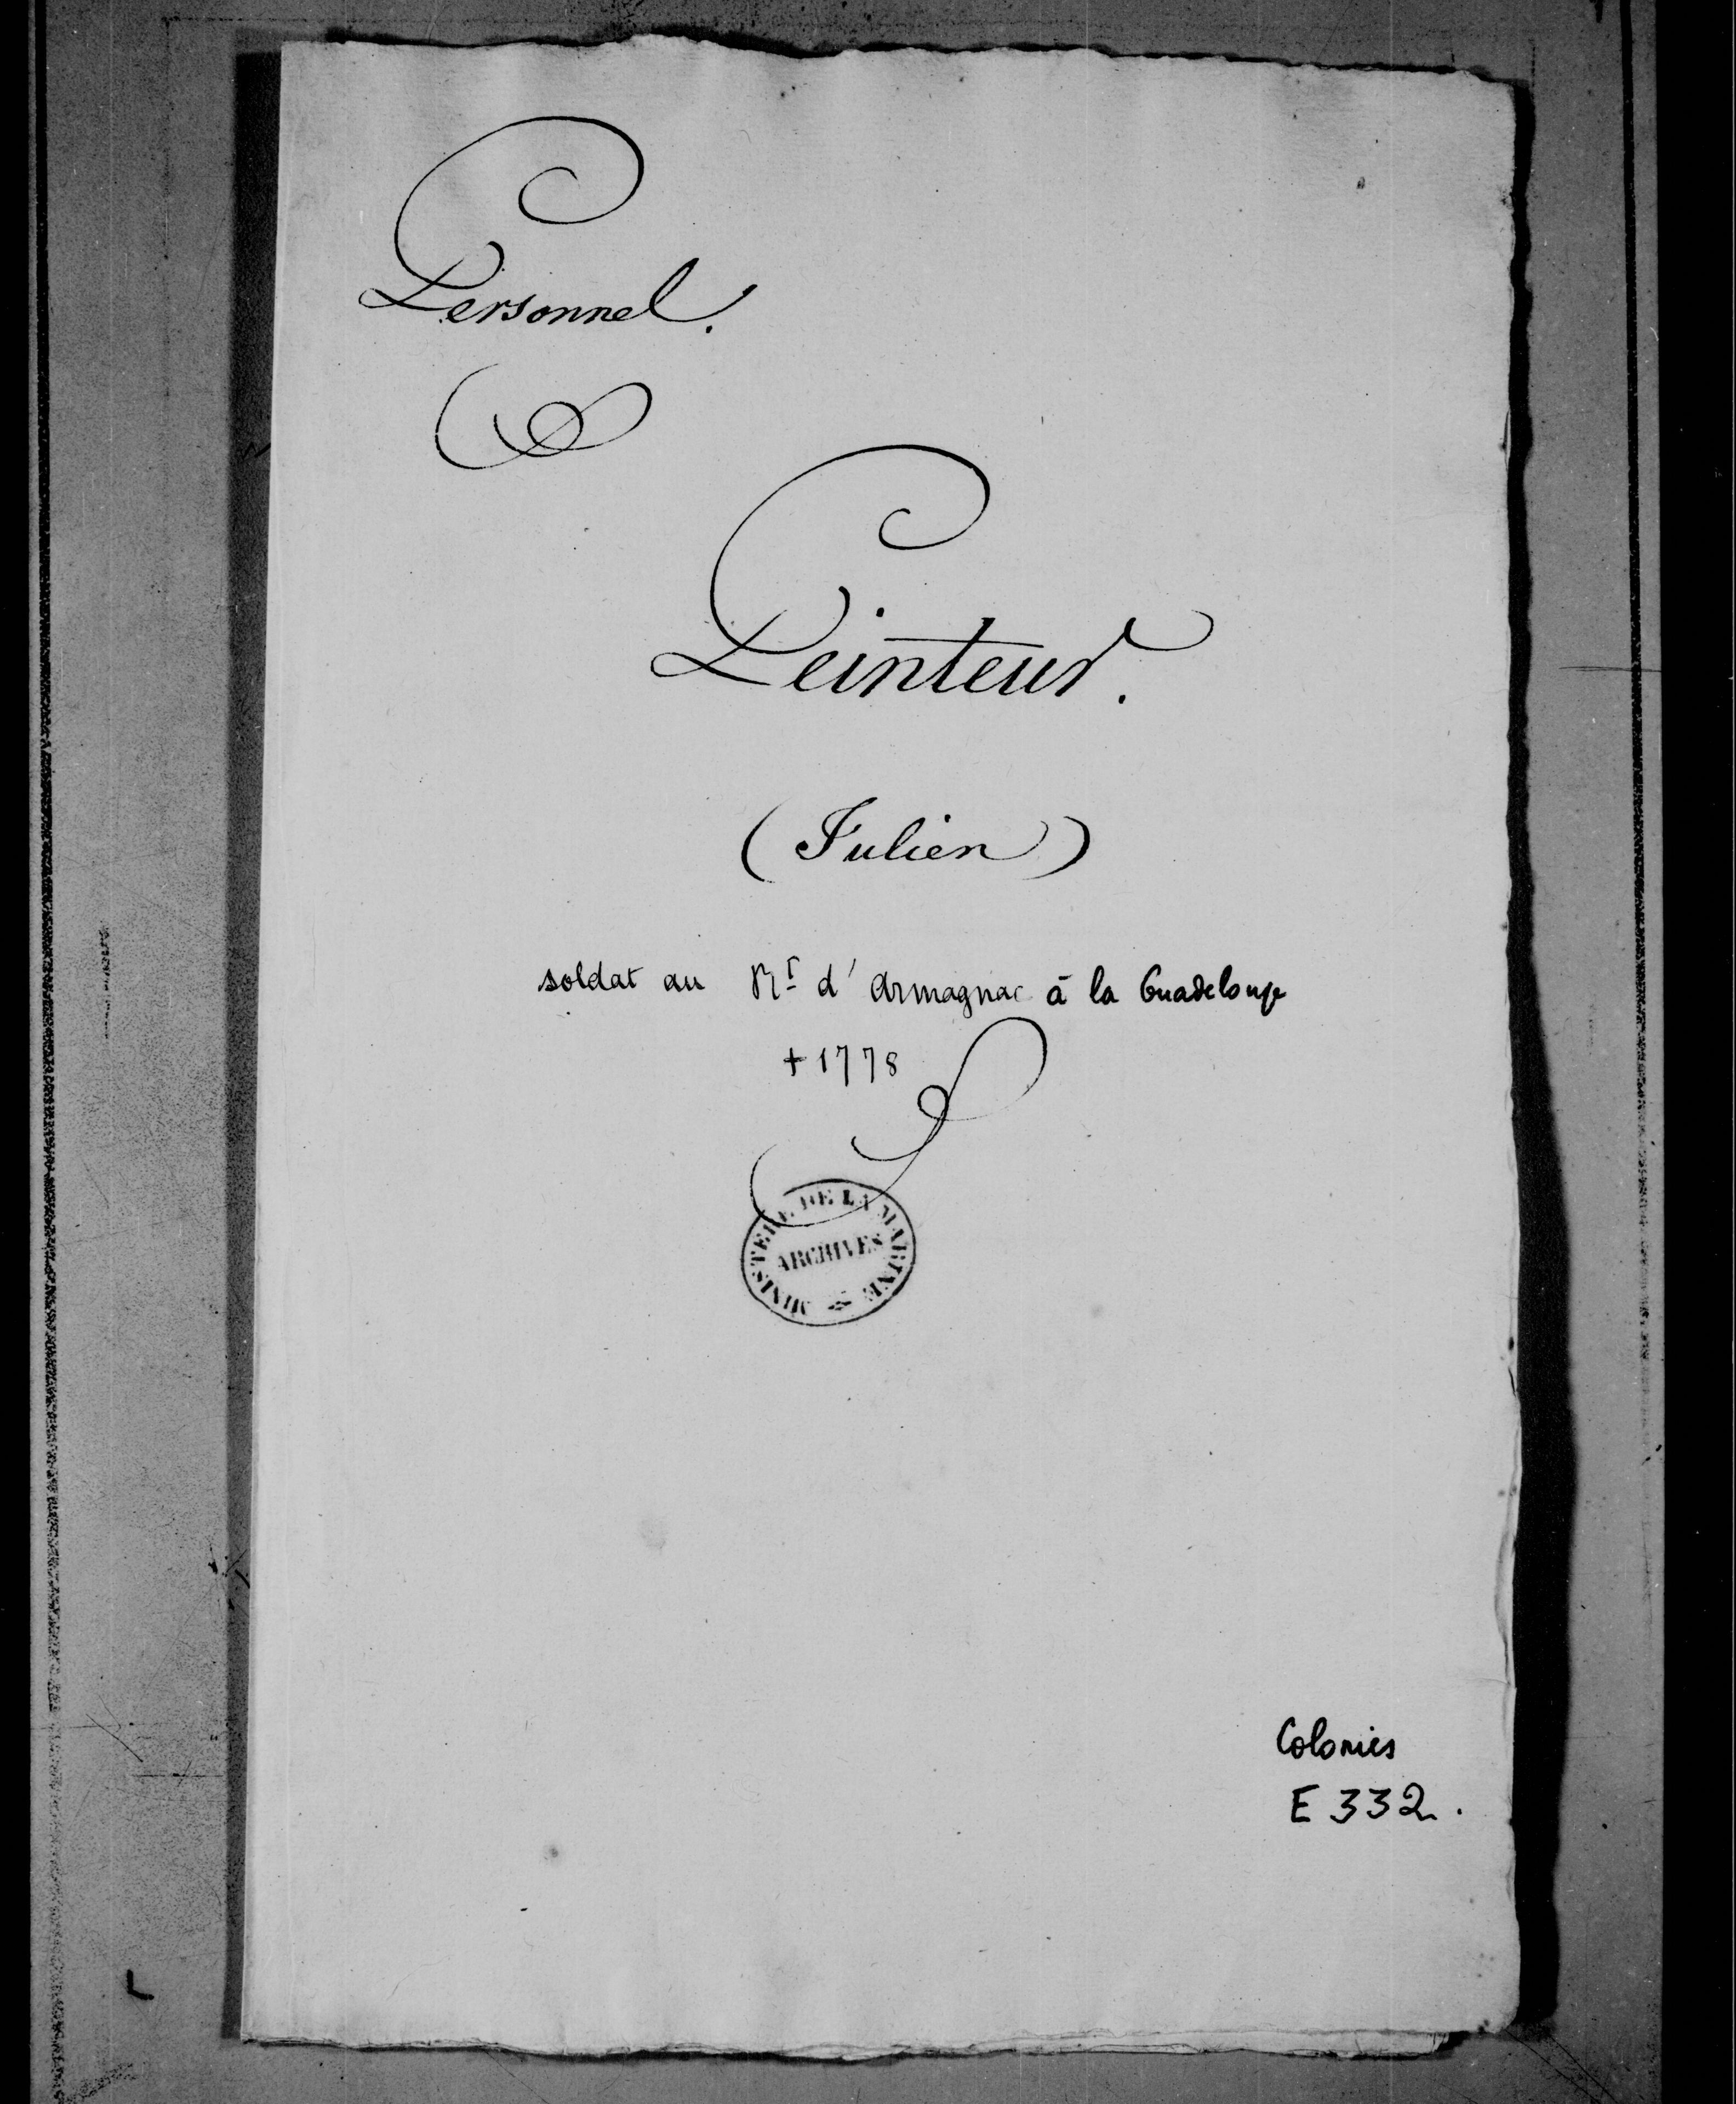 Personnel.
Peinteur.
(Julien)
soldat au Rt d'Armagnac à la Guadeloupe
+ 1778
MINISTERE DE LA MARINE
ARCHIVES
Colonies
E 332.